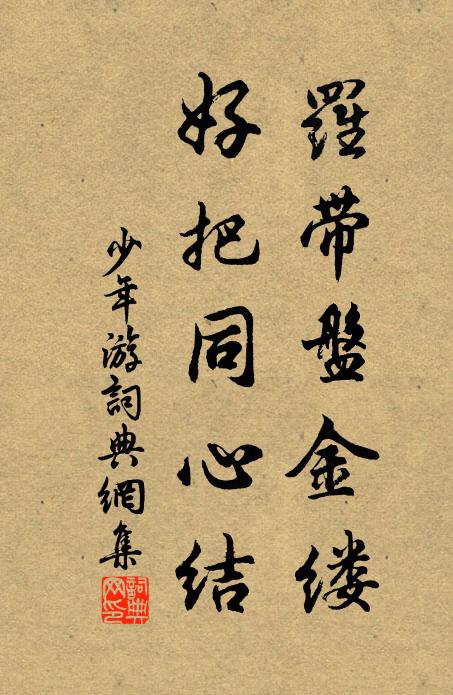 羅带盤金缕
好把同心结
少年游詞典網集
詞典网印